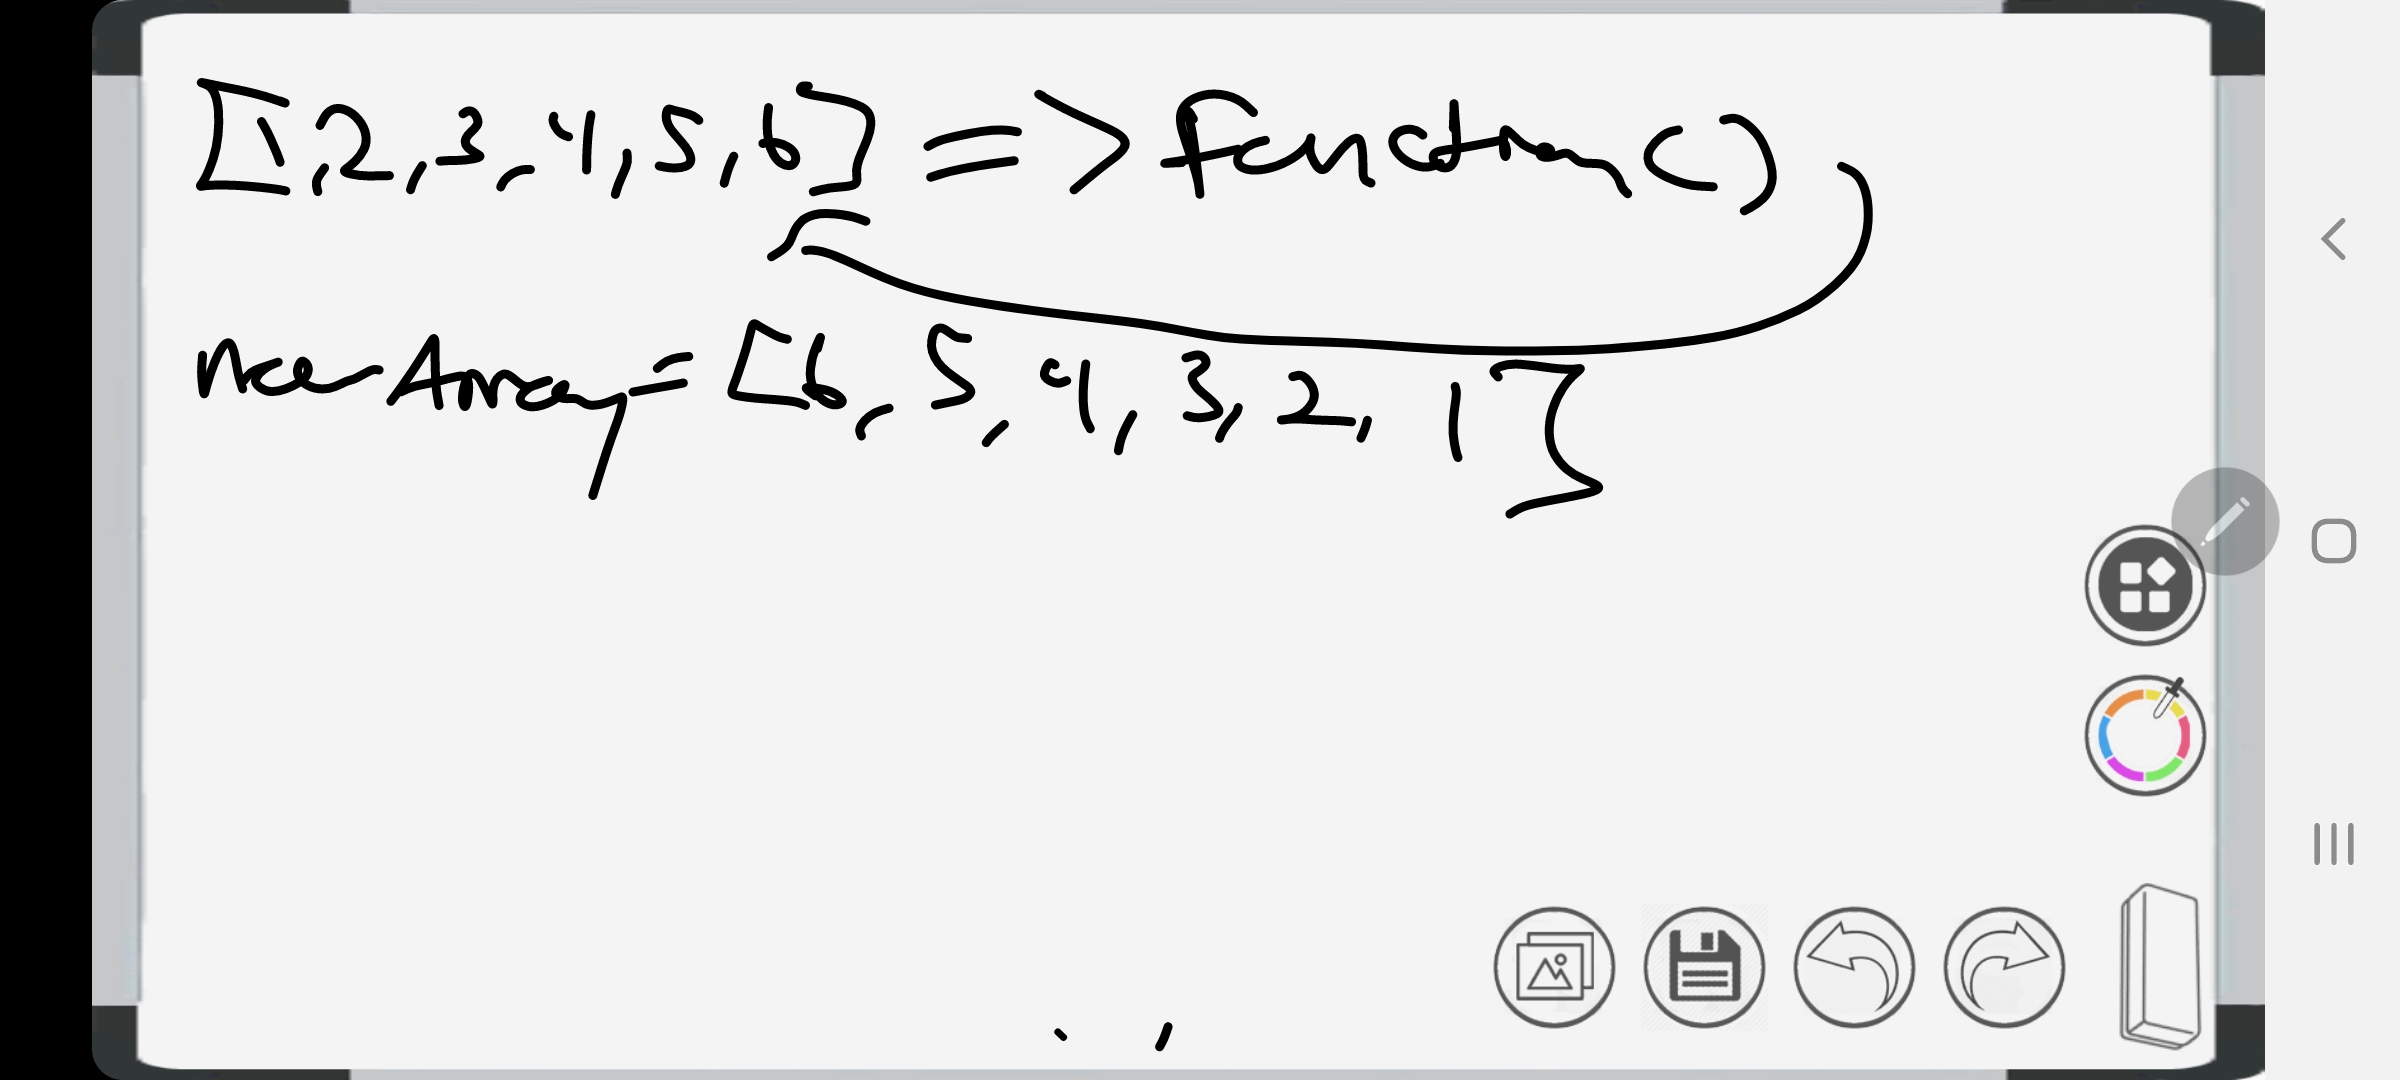 [1,2,3,4,5,6] => function()
newArray = [6,5,4,3,2,1]